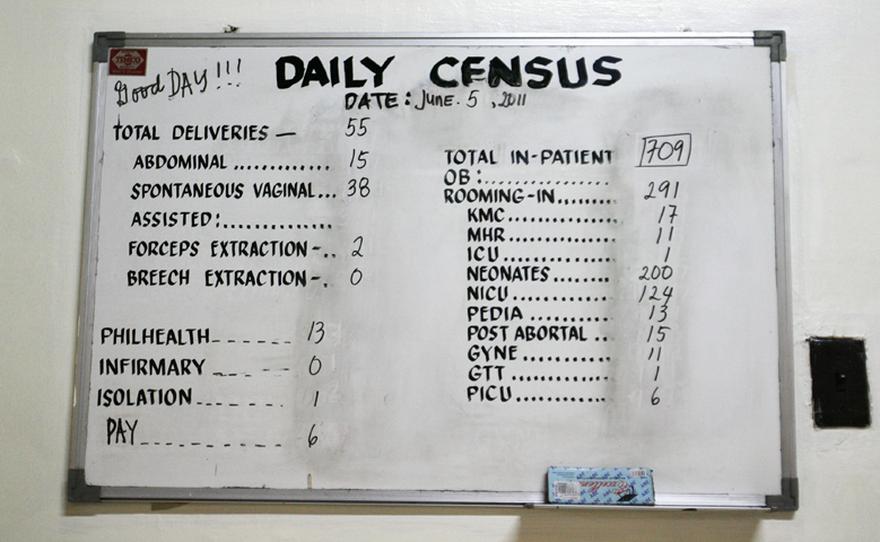 TEMCO
Good DAY!!!
DAILY CENSUS
DATE: JUNE. 5, 2011
TOTAL DELIVERIES — 55
ABDOMINAL ............. 15
SPONTANEOUS VAGINAL... 38
ASSISTED:..............
FORCEPS EXTRACTION-.. 2
BREECH EXTRACTION-. 0
PHILHEALTH_ _ _ _ _ _ 13
INFIRMARY _ _ _ _ _ 0
ISOLATION_ _ _ _ _ _ 1
PAY_ _ _ _ _ _ _ _ _ 6
TOTAL IN-PATIENT 709
OB:................
ROOMING-IN........ 291
KMC............... 17
MHR.............. 11
ICU.............. 1
NEONATES........ 200
NICU.............. 124
PEDIA ............ 13
POST ABORTAL ... 15
GYNE ............. 11
GTT .............. 1
PICU.............. 6
Excellent